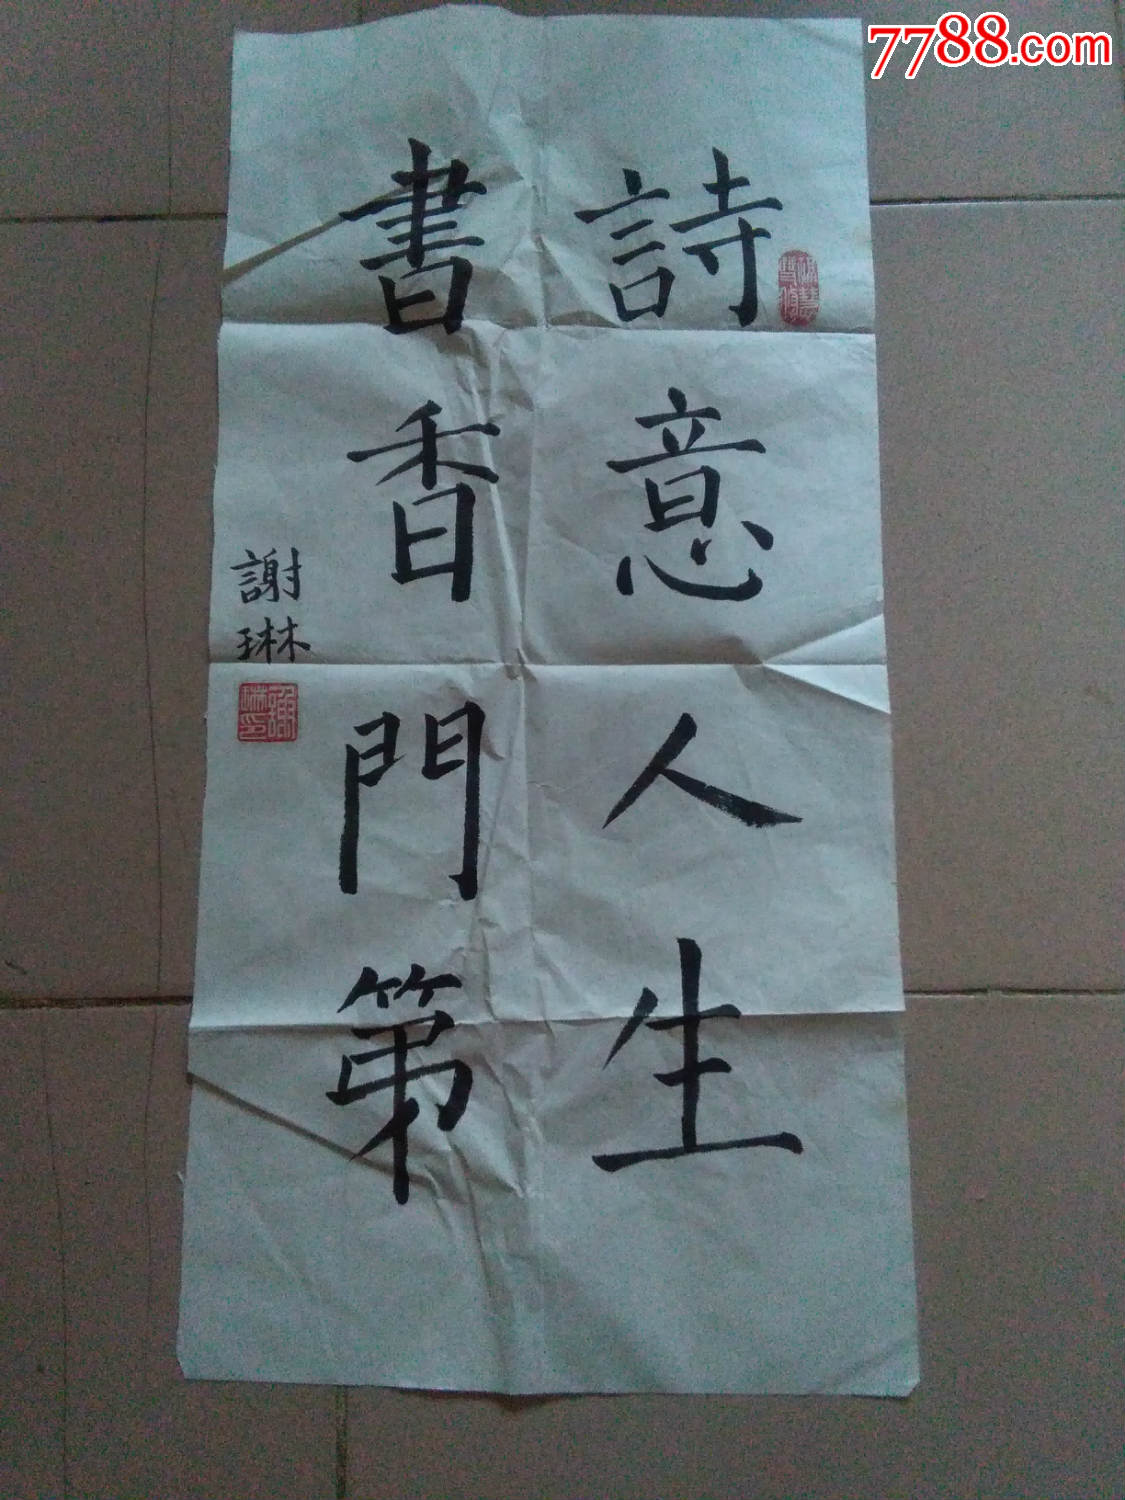 7788.com
詩意人生
書香門第
謝琳
謝琳印